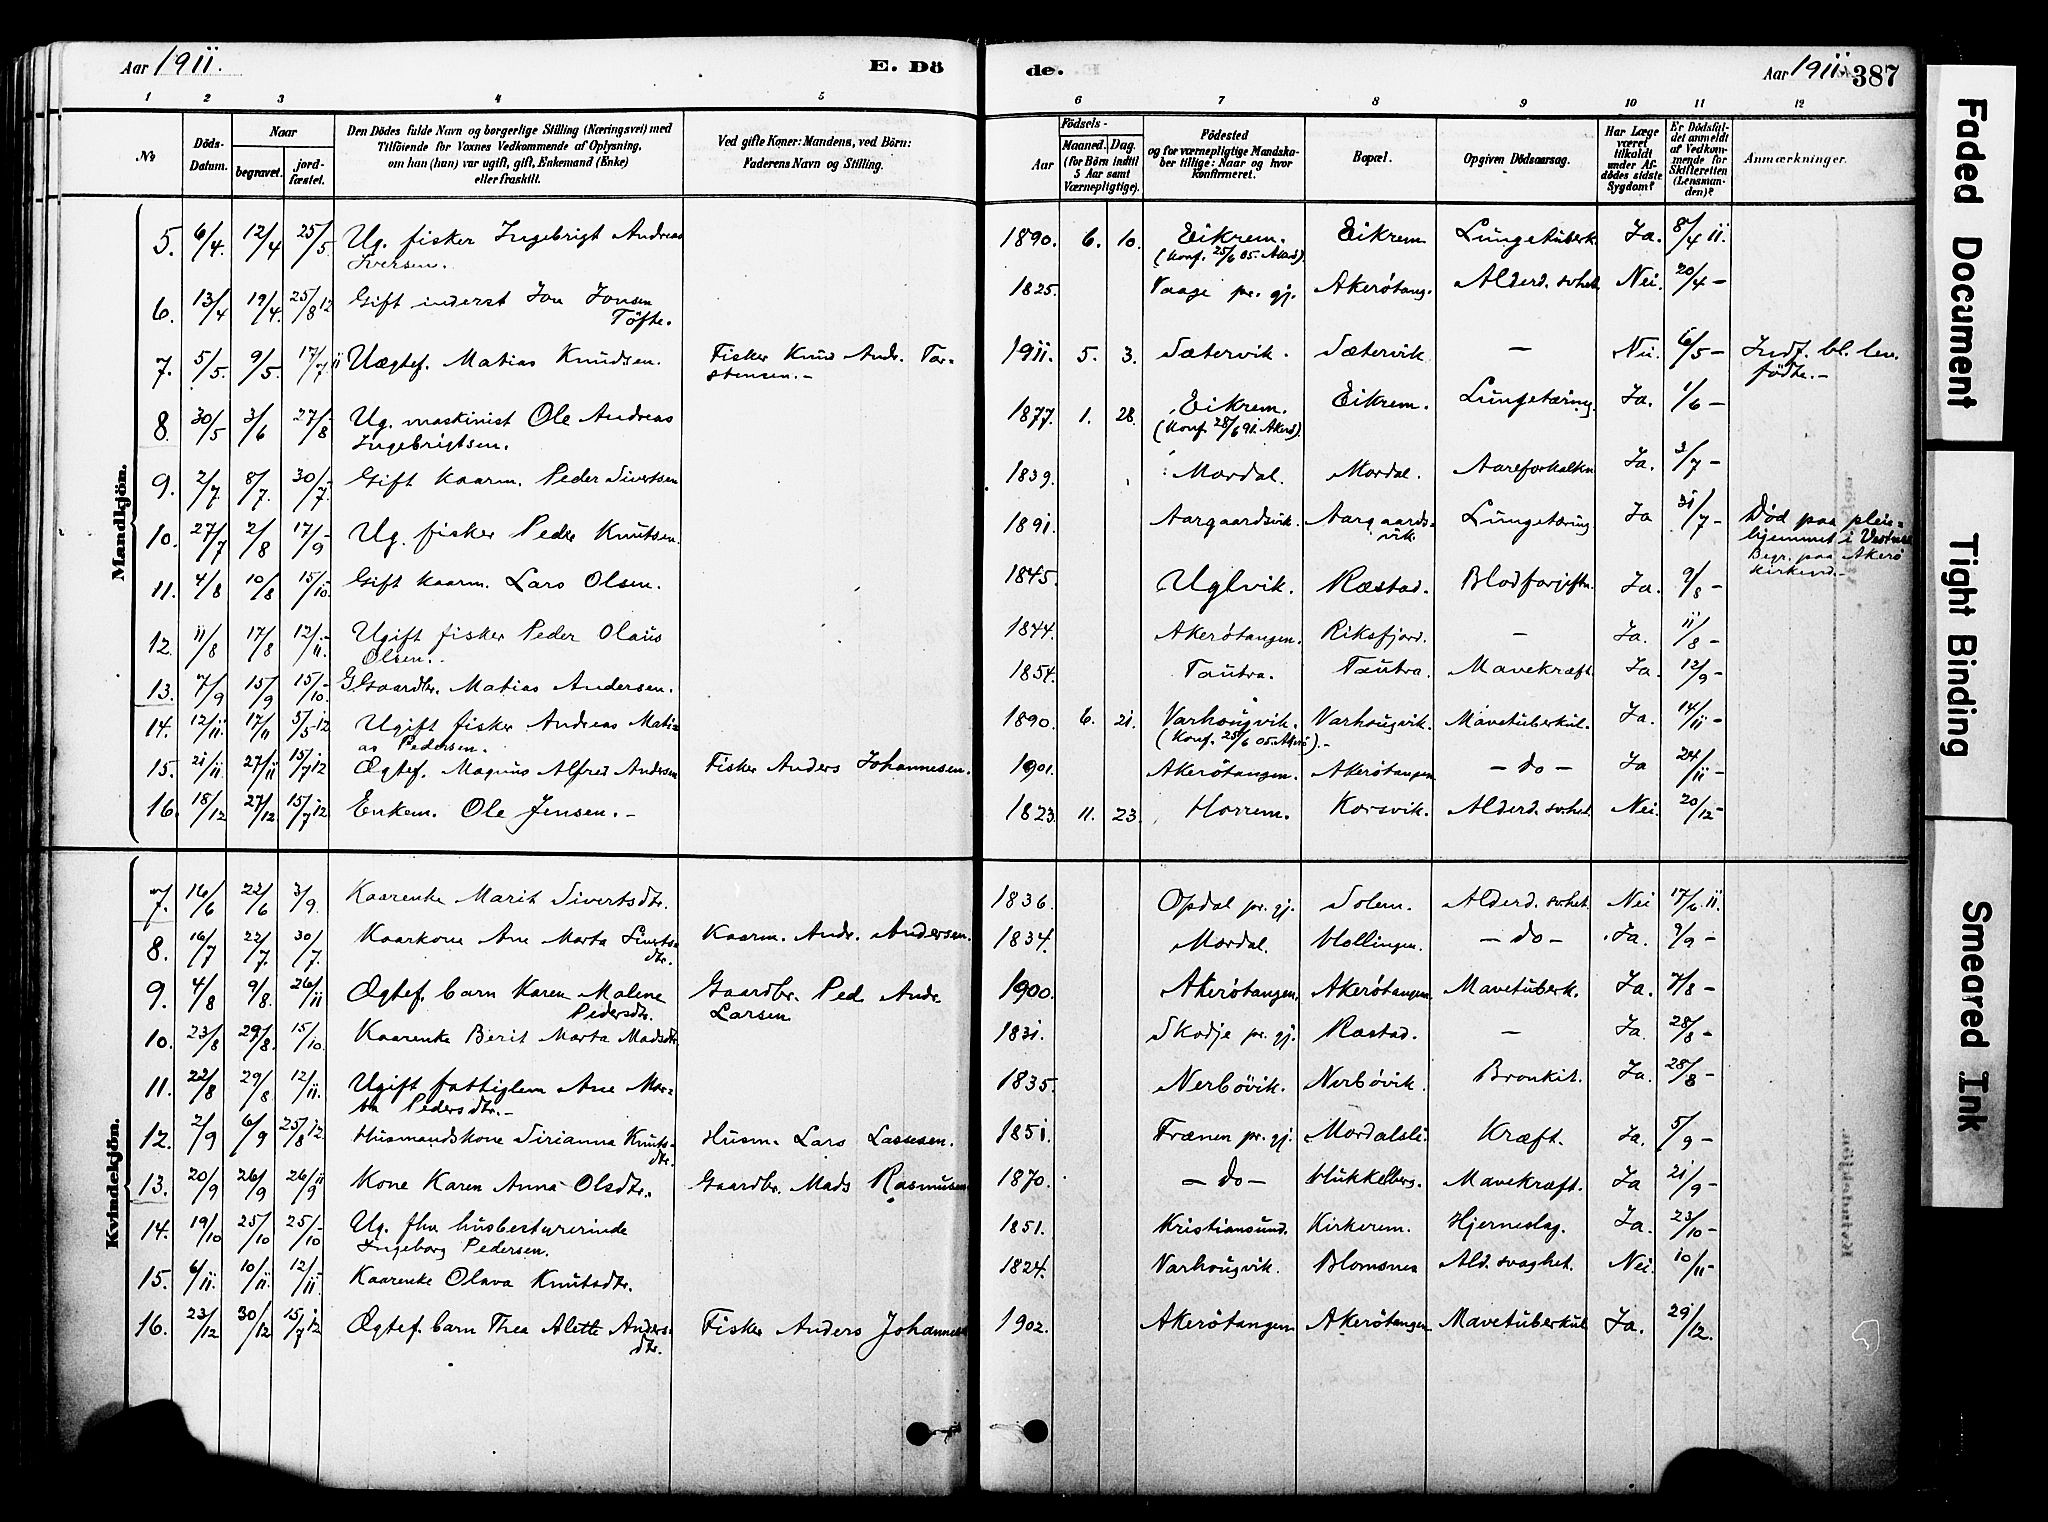 Aar 1911. E. Dö de. Aar 1911. 387
1 2 3 4 5 6 7 8 9 10 11 12
No
Döds-Datum.
Naar
begravet.
jord-fæstet.
Den Dödes fulde Navn og borgerlige Stilling (Næringsvei) med
Tilföiende for Voxnes Vedkommende af Oplysning,
om han (hun) var ugift, gift, Enkemand (Enke)
eller fraskilt.
Ved gifte Koner: Mandens, ved Börn:
Faderens Navn og Stilling.
Födsels-
Aar
Maaned. Dag.
(for Börn indtil
5 Aar samt
Værnepligtige).
Födested
og for værnepligtige Mandska-
ber tillige: Naar og hvor
konfirmeret.
Bopæl.
Opgiven Dödsaarsag.
Har Læge
været
tilkaldt
under Af-
dödes sidste
Sygdom?
Er Dödsfal-
det anmeldt
af Vedkom-
mende for
Skifteretten
(Lensman-
den)?
Anmærkninger.
Mandkjön.
5. 6/4 12/4 25/5 Ug. fisker Ingebrigt Andreas 1890. 6. 10. Eikrem. Eikrem Lungetuberk. Ja. 8/4 11.
Iversen. (Konf. 25/6 05. Akerö)
6. 13/4 19/4 25/8 12 Gift inderst Jon Jonsen 1825. Vaage pr. gj. Akerötang. Alderd. svhet. Nei. 20/4 -
Töfte.
7. 5/5. 9/5. 17/7 11 Uægtef. Matias Knudsen. Fisker Knud Andr. Tor- 1911. 5. 3. Sætervik. Sætervik. - Nei. 6/5 - Indf. bl. lev.
stensen. - födte. -
8. 30/5 3/6 27/8 - Ug. maskinist Ole Andreas 1877. 1. 28. Eikrem. Eikrem. Lungetæring. Ja. 1/6 -
Ingebrigtsen. (Konf. 28/6 91. Akerö)
9. 2/7 8/7. 30/7 - Gift kaarm. Peder Sivertsen 1839. Mordal. Mordal. Aareforkalkn Ja. 3/7 -
10. 27/7 2/8 17/9 - Ug. fisker Peder Knutsen. 1891. Aargaardsvik. Aargaards- Lungetæring Ja 31/7 - Död paa pleie-
vik. hjemmet i Vestnes
Begr. paa Akerö
kirkegd. -
11. 4/8 10/8 15/10 - Gift kaarm. Lars Olsen. 1845. Uglvik. Ræstad. Blodforgiftn. Ja. 9/8 -
12. 11/8 17/8 12/11 - Ugift fisker Peder Olaus 1844. Akerötangen. Riksfjord. - Ja. 11/8 -
Olsen.
13. 7/9 15/9 15/10 - G. Gaardbr. Matias Andersen. 1854. Tautra. Tautra. Mavekræft. Ja. 12/9 -
14. 12/11 17/11 5/5 12 Ugift fisker Andreas Mati- 1890. 6. 21. Varhougvik. Varhougvik. Mavetuberkul. Ja. 14/11 -
as Pedersen. (Konf. 25/6 05. Akerö). -
15. 21/11 27/11 15/7 12 Ægtef. Magnus Alfred Andersen Fisker Anders Johannesen. 1901. Akerötangen. Akerötangen - do - Ja 24/11 -
16. 18/12 27/12 15/7 12 Enkem. Ole Jensen. - 1823. 11. 23. Horrem. Korsvik. Alderd. svhet. Nei. 20/12 -
Kvindekjön.
7. 16/6 22/6 3/9. Kaarenke Marit Sivertsdtr. 1836. Opdal pr. gj. Solem. Alderd. svhet. Nei 17/6 11.
8. 16/7 22/7. 30/7. Kaarkone Ane Marta Sivertsdtr. Kaarm. Andr. Andersen. 1834. Mordal. Hollingen. - do - Ja. 9/9 -
9. 4/8 9/8. 26/11 Ægtef. barn Karen Malene Gaardbr. Ped. Andr. 1900. Akerötangen. Akerötangen. Mavetuberk. Ja. 7/8 -
Pedersdtr. Larsen
10. 23/8 29/8. 15/10. Kaarenke Berit Marta Madsdtr. 1831. Skodje pr. gj. Ræstad. - Ja. 28/8 -
11. 22/8 29/8 12/11. Ugift fattiglem Ane Mar- 1835. Nerbövik. Nerbövik. Bronkit. Ja. 28/8 -
ta Pedersdtr. -
12. 2/9 6/9 25/8 12. Husmandskone Sirianna Knuts- Husm. Lars Lassesen. 1851. Frænen pr. gj. Mordalsli. Kræft. Ja. 5/9 -
dtr.
13. 20/9 26/9 26/9 11 Kone Karen Anna Olsdtr. Gaardbr. Mads Rasmusen 1870. - do - Hukkelberg. Mavekræft. Ja 21/9 -
14. 19/10 25/10 25/10 - Ug. fhv. husbestyrerinde 1851. Kristiansund. Kirkerem. Hjerneslag. Ja. 23/10 -
Ingeborg Pedersen.
15. 6/11. 10/11. 12/11 Kaarenke Olava Knutsdtr. 1824. Varhougvik. Blomsnes Ald. svaghet. Nei. 10/11 -
16. 23/12 30/12 15/7 12 Ægtef. barn Thea Alette Anders- Fisker Anders Johannes 1902. Akerötangen Akerötangen Mavetuberkul Ja. 29/12.
dtr.
Faded Document
Tight Binding
Smeared Ink